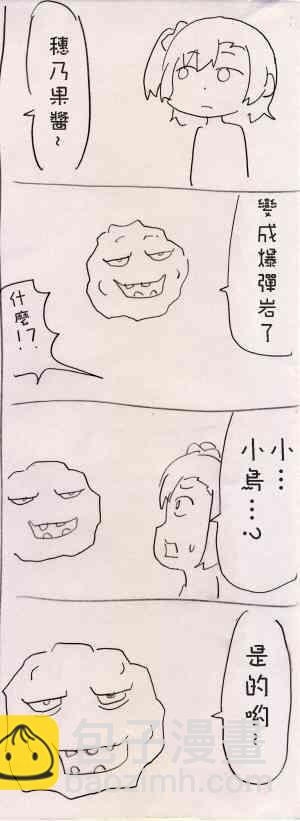 穗乃果醬~
變成爆彈岩了
什麼!?
小…
小鳥…?
是的喲~
包子漫畫
baozimh.com